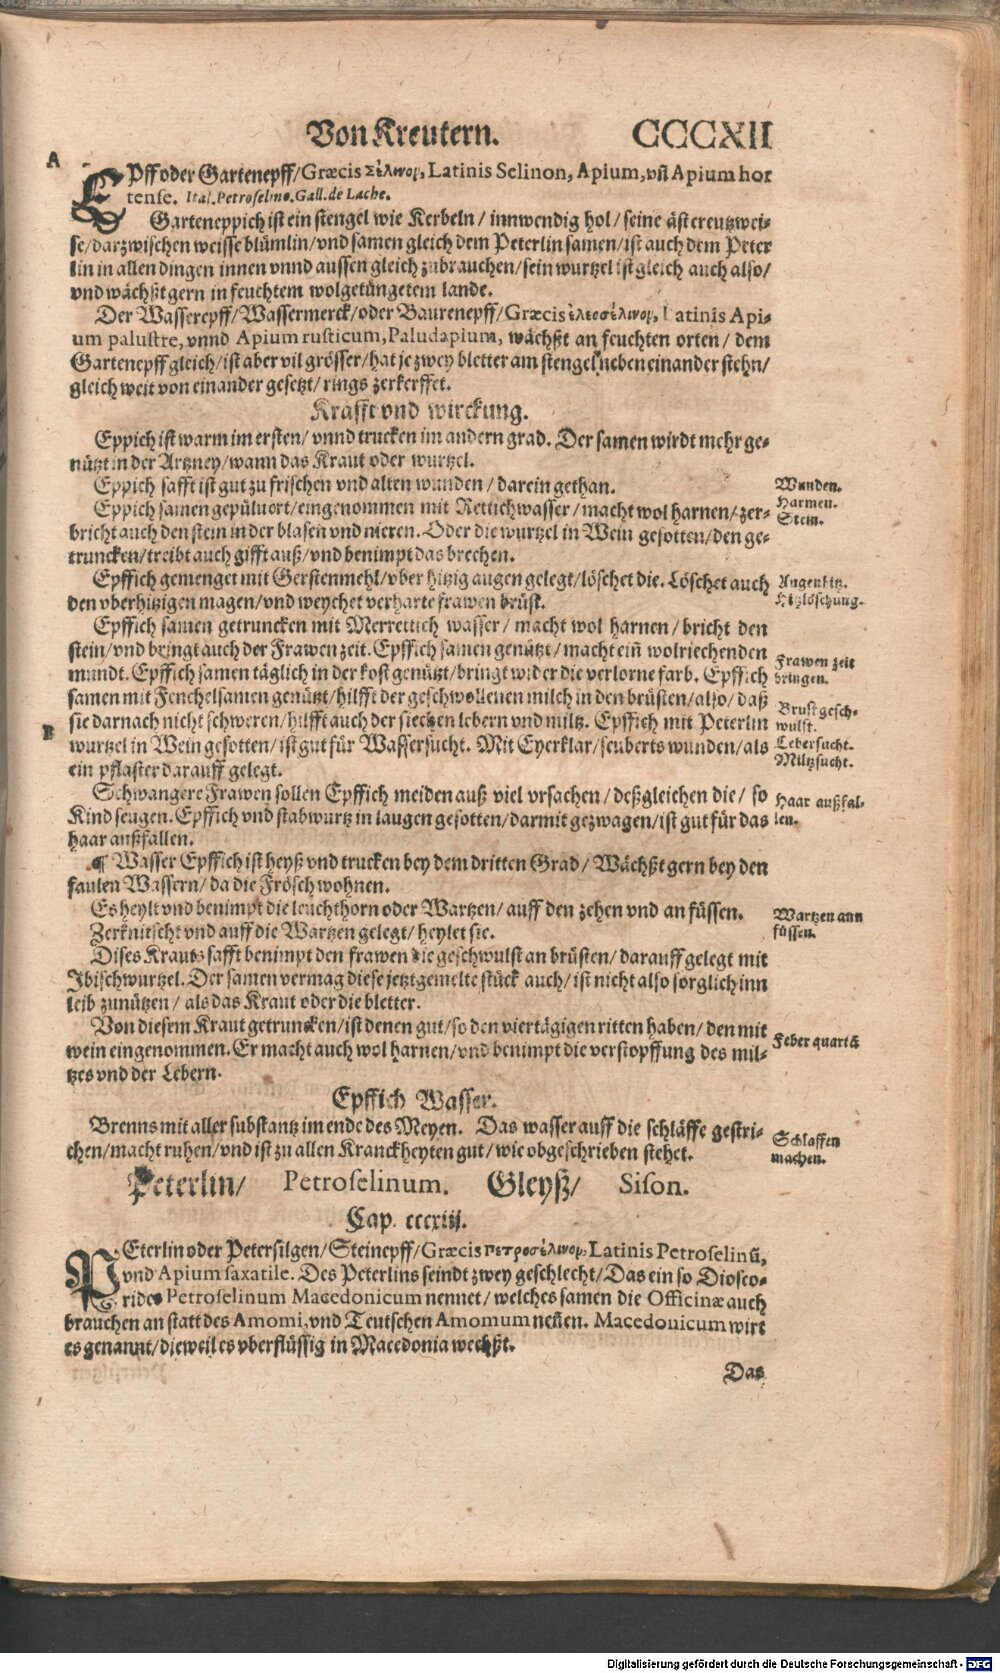 Von Kreutern. CCCXII
A
EPff oder Gartenepff/Græcis Σέλινoν, Latinis Selinon, Apium, vñ Apium hor
tense. Ital. Petroselino. Gall. de Lache.
Garteneppich ist ein stengel wie Kerbeln/ innwendig hol/ seine äst creutzwei-
se/darzwischen weisse blümlin/vnd samen gleich dem Peterlin samen/ist auch dem Peter
lin in allen dingen innen vnnd aussen gleich zubrauchen/sein wurtzel ist gleich auch also/
vnd wächßt gern in feuchtem wolgetüngetem lande.
Der Wasserepff/Wassermerck/oder Baurenepff/Græcis ἑλεοσέλινoν, Latinis Api-
um palustre, vnnd Apium rusticum, Paludapium, wächßt an feuchten orten/ dem
Gartenepff gleich/ist aber vil grösser/hat je zwey bletter am stengel neben einander stehn/
gleich weit von einander gesetzt/ rings zerkerffet.
Krafft vnd wirckung.
Eppich ist warm im ersten/ vnnd trucken im andern grad. Der samen wirdt mehr ge-
nützt in der Artzney/wann das Kraut oder wurtzel.
Eppich safft ist gut zu frischen vnd alten wunden/ darein gethan.
Wunden.
Eppich samen gepüluert/eingenommen mit Rettichwasser/macht wol harnen/zer-
Harmen.
Stein.
bricht auch den stein in der blasen vnd nieren. Oder die wurtzel in Wein gesotten/den ge-
truncken/treibt auch gifft auß/vnd benimpt das brechen.
Epffich gemenget mit Gerstenmehl/vber hitzig augen gelegt/löschet die. Löschet auch
Augenhitz.
den vberhitzigen magen/vnd weychet verharte frawen brüst.
Hitzlöschung.
Epffich samen getruncken mit Merrettich wasser/ macht wol harnen/bricht den
stein/vnd bringt auch der Frawen zeit. Epffich samen genützt/macht ein wolriechenden
Frawen zeit
mundt. Epffich samen täglich in der kost genützt/bringt wider die verlorne farb. Epffich
bringen.
samen mit Fenchelsamen genützt/hilfft der geschwollenen milch in den brüsten/also/daß
Brust gesch-
sie darnach nicht schweren/hilfft auch der siechen lebern vnd miltz. Epffich mit Peterlin
wulst.
B
wurtzel in Wein gesotten/ist gut für Wassersucht. Mit Eyerklar/seuberts wunden/als
Lebersucht.
Miltzsucht.
ein pflaster darauff gelegt.
Schwangere Frawen sollen Epffich meiden auß viel vrsachen/deßgleichen die/ so
Haar außfal-
Kind seugen. Epffich vnd stabwurtz in laugen gesotten/darmit gezwagen/ist gut für das
len.
haar außfallen.
¶ Wasser Epffich ist heyß vnd trucken bey dem dritten Grad/ Wächßt gern bey den
faulen Wassern/ da die Frösch wohnen.
Es heylt vnd benimpt die leuchthorn oder Wartzen/ auff den zehen vnd an füssen.
Wartzen ann
Zerknitscht vnd auff die Wartzen gelegt/heylet sie.
füssen.
Dises Krauts safft benimpt den frawen die geschwulst an brüsten/ darauff gelegt mit
Ibischwurtzel. Der samen vermag diese jetztgemelte stück auch/ist nicht also sorglich inn
leib zunützen/ als das Kraut oder die bletter.
Von diesem Kraut getruncken/ist denen gut/so den viertägigen ritten haben/den mit
Feber quartā
wein eingenommen. Er macht auch wol harnen/vnd benimpt die verstopffung des mil-
tzes vnd der Lebern.
Epffich Wasser.
Brenns mit aller substantz im ende des Meyen. Das wasser auff die schläffe gestri-
Schlaffen
chen/macht ruhen/vnd ist zu allen Kranckheyten gut/ wie obgeschrieben stehet.
machen.
Peterlin/ Petroselinum. Gleyß/ Sison.
Cap. cccxiij.
PEterlin oder Petersilgen/Steinepff/Græcis πετροσέλινoν, Latinis Petroselinū,
vnd Apium saxatile. Des Peterlins seindt zwey geschlecht/Das ein so Diosco-
rides Petroselinum Macedonicum nennet/welches samen die Officinæ auch
brauchen an statt des Amomi, vnd Teutschen Amomum neñen. Macedonicum wirt
es genannt/dieweil es vberflüssig in Macedonia wechßt.
Das
Digitalisierung gefördert durch die Deutsche Forschungsgemeinschaft - DFG